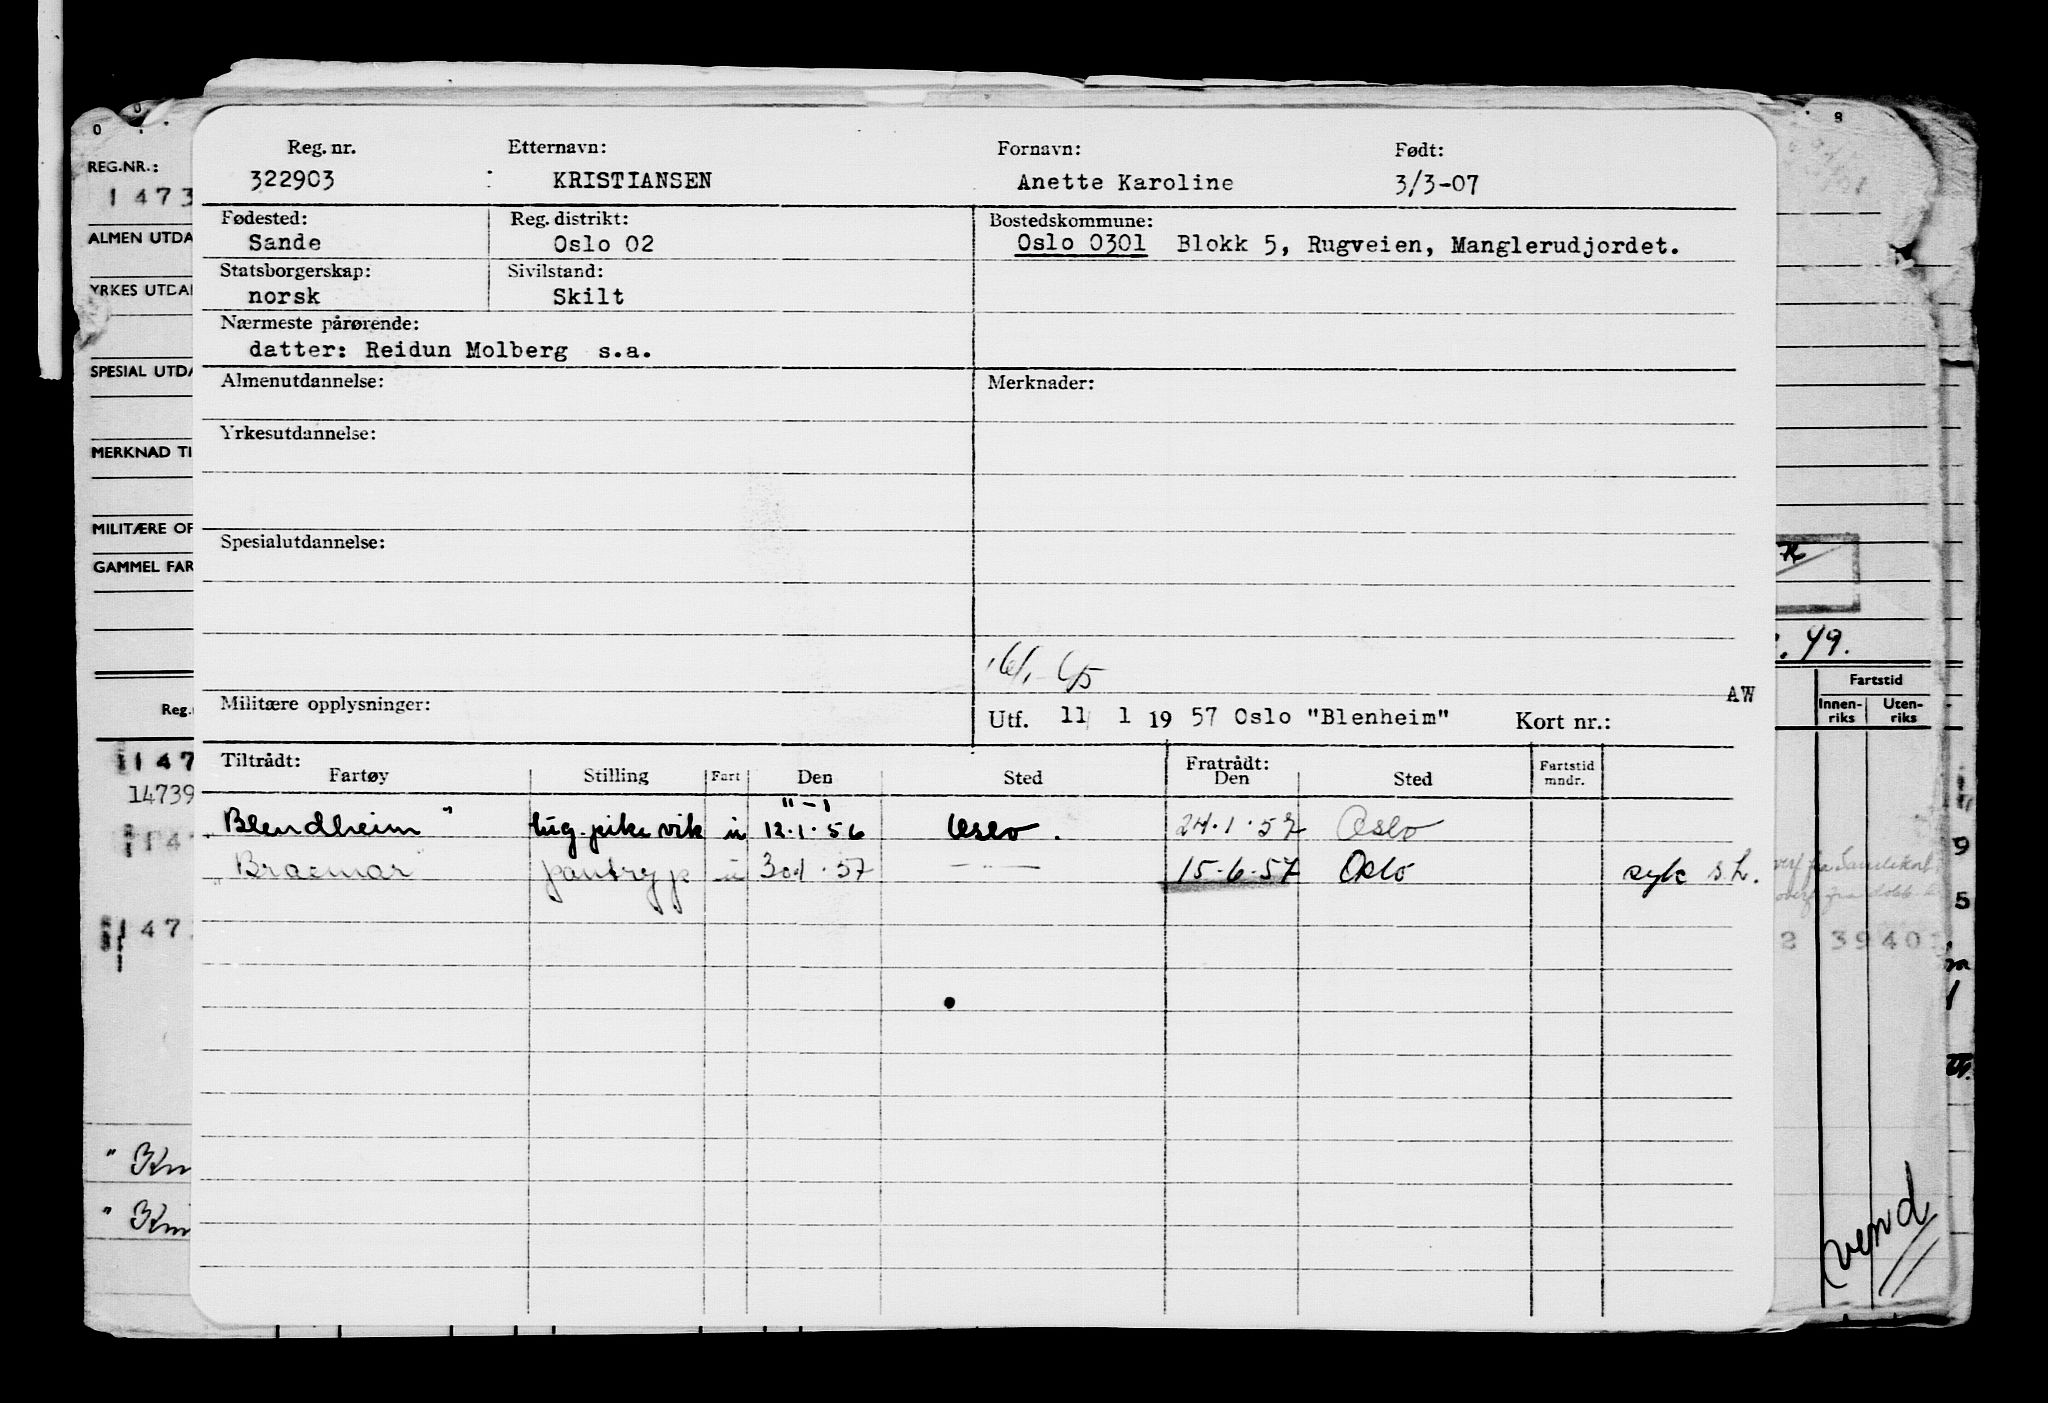 Reg. nr. Etternavn: Fornavn: Født:
322903 : KRISTIANSEN Anette Karoline 3/3-07
Fødested: Reg. distrikt: Bostedskommune:
Sande Oslo 02 Oslo 0301 Blokk 5, Rugveien, Manglerudjordet.
Statsborgerskap: Sivilstand:
norsk Skilt
Nærmeste pårørende:
datter: Reidun Molberg s.a.
Almenutdannelse: Merknader:
Yrkesutdannelse:
Spesialutdannelse:
Militære opplysninger:
AW
Utf. 11/ 1 19 57 Oslo "Blenheim" Kort nr.:
Tiltrådt: Fratrådt:
Fartøy Stilling Fart Den Sted Den Sted Fartstid mndr.
" - 1
"Blendheim" lug.pike vik u 12.1.56 Oslo. 24.1.57 Oslo
"Braemar pantryp u 30/1.57 — — 15-6-57 Oslo syk s.h.
REG.NR.:
1473
ALMEN UTDA
YRKES UTDA
SPESIAL UTDA
MERKNAD TI
MILITÆRE OP
GAMMEL FAR
Reg.
147
14739
147
147
"Km
"Km
49.
Fartstid
Innen-riks Uten-riks
9
5
2 3940
vend